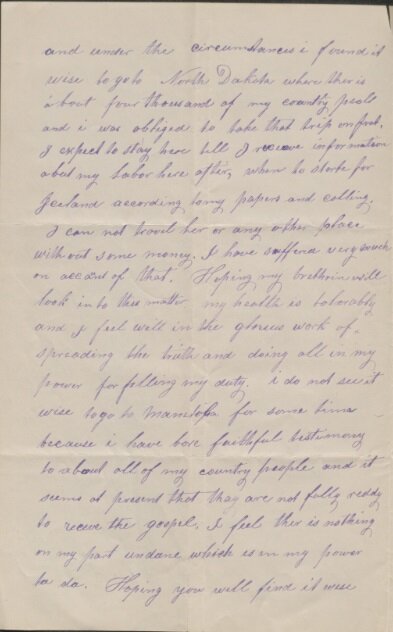 and under the circumstances i found it
wise to go to North Dakota where ther is
about four thousand of my country peolt
and i was obliged to take that trip on foot.
I expect to stay here till I receve information
abut my labor here after, when to starte for
Iceland according to my papers and calling.
I can not travel her or any other place
without some money. I have suffered very much
on account of that. Hoping my brethrin will
look in to this matter, my health is tolorably
and I feel well in the glorius work of
spreading the truth and doing all in my
power for filling my duty. i do not see it
wise to go to Manitoba for some time
because i have bore faithful testimony
to about all of my country people and it
seems at present that thay are not fully reddy
to receve the gospel. I feel ther is nothing
on my part undane which is in my power
to do. Hoping you will find it wise